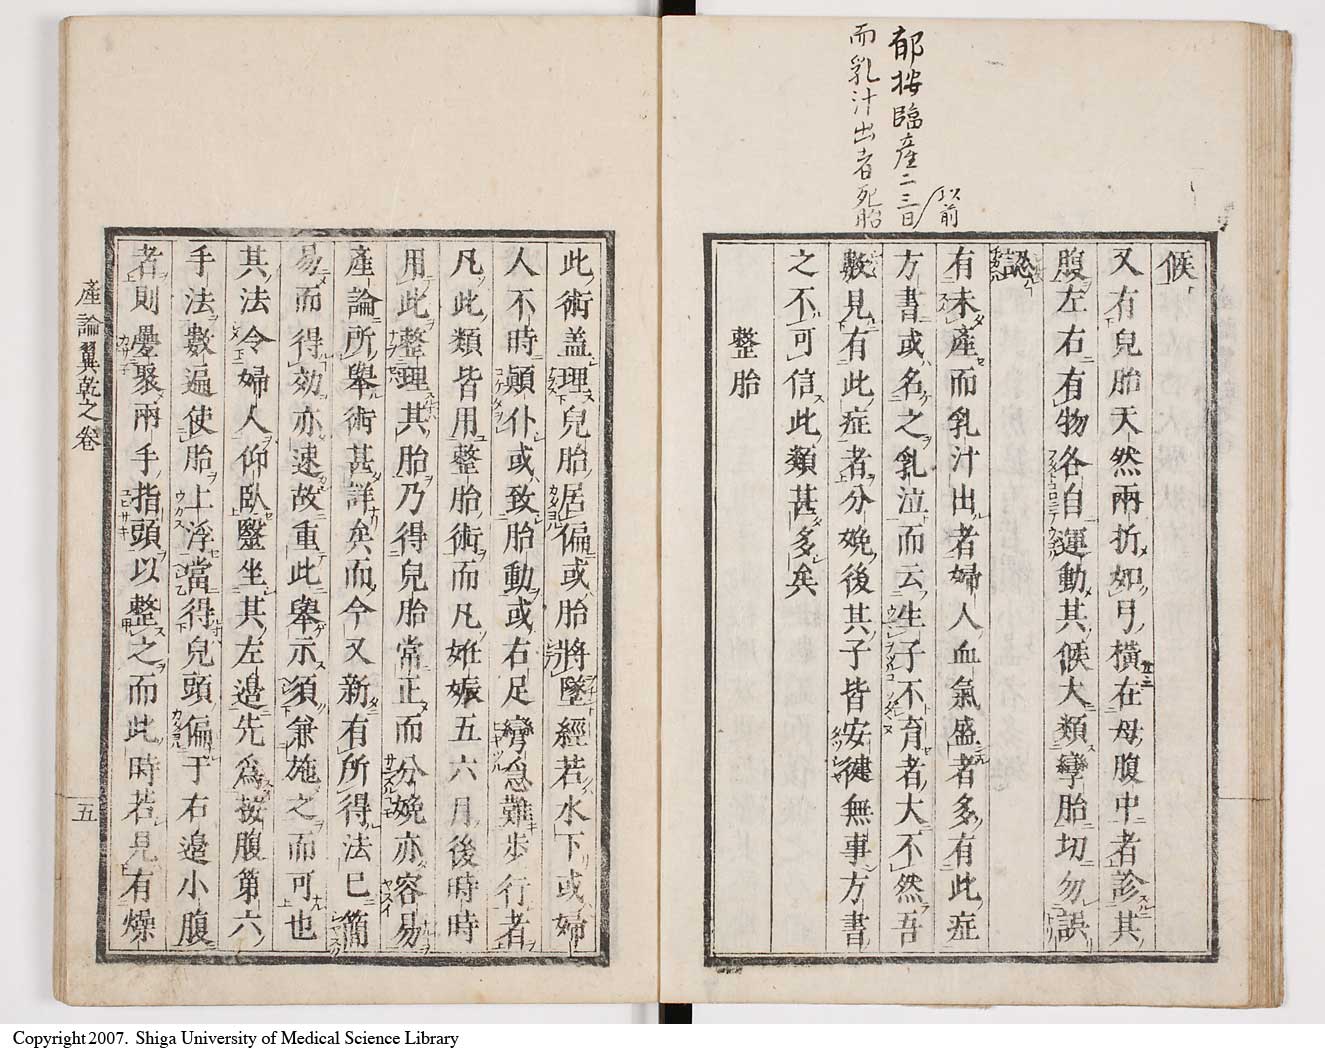 郁按臨産二三日以前
而乳汁出者死胎
候
又有兒胎天然兩折如弓橫在母腹中者診其
腹左右有物各自運動其候大類孿胎切勿誤
認
有未產而乳汁出者婦人血氣盛者多有此症
方書或名之乳泣而云生子不育者大不然吾
數見有此症者分娩後其子皆安健無事方書
之不可信此類甚多矣
整胎
此術蓋理兒胎居偏或胎將墜經若水下或婦
人不時顚仆或致胎動或右足彎急難步行者
凡此類皆用整胎術而凡姙娠五六月後時時
用此整理其胎乃得兒胎常正而分娩亦容易
產論所舉術甚詳矣而今又新有所得法已簡
易而得効亦速故重此舉示須兼施之而可也
其法令婦人仰臥醫坐其左邊先爲按腹第六
手法數遍使胎上浮當得兒頭偏于右邉小腹
者則疊聚兩手指頭以整之而此時若見有燥
產論翼乾之卷
五
Copyright 2007. Shiga University of Medical Science Library